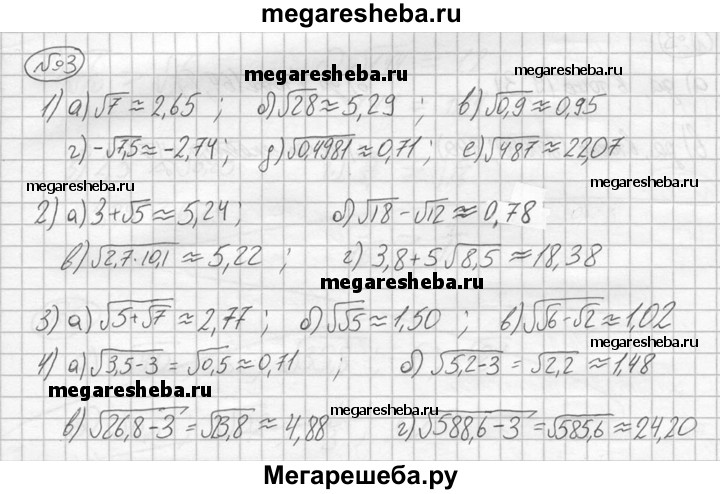 megaresheba.ru
№3
megaresheba.ru
1) а) √7 ≈ 2,65 ; б) √28 ≈ 5,29 ; в) √0,9 ≈ 0,95
г) -√7,5 ≈ -2,74 ; д) √0,4981 ≈ 0,71 ; е) √487 ≈ 22,07
megaresheba.ru megaresheba.ru
2) а) 3+√5 ≈ 5,24 ; б) √18 - √12 ≈ 0,78
в) √2,7·10,1 ≈ 5,22 ; г) 3,8+5√8,5 ≈ 18,38
megaresheba.ru
3) а) √5+√7 ≈ 2,77 ; б) √√5 ≈ 1,50 ; в) √√6-√2 ≈ 1,02
4) а) √3,5-3 = √0,5 ≈ 0,71 ; б) √5,2-3 = √2,2 ≈ 1,48
megaresheba.ru megaresheba.ru
в) √26,8-3 = √23,8 ≈ 4,88 г) √588,6-3 = √585,6 ≈ 24,20
Мегарешеба.ру